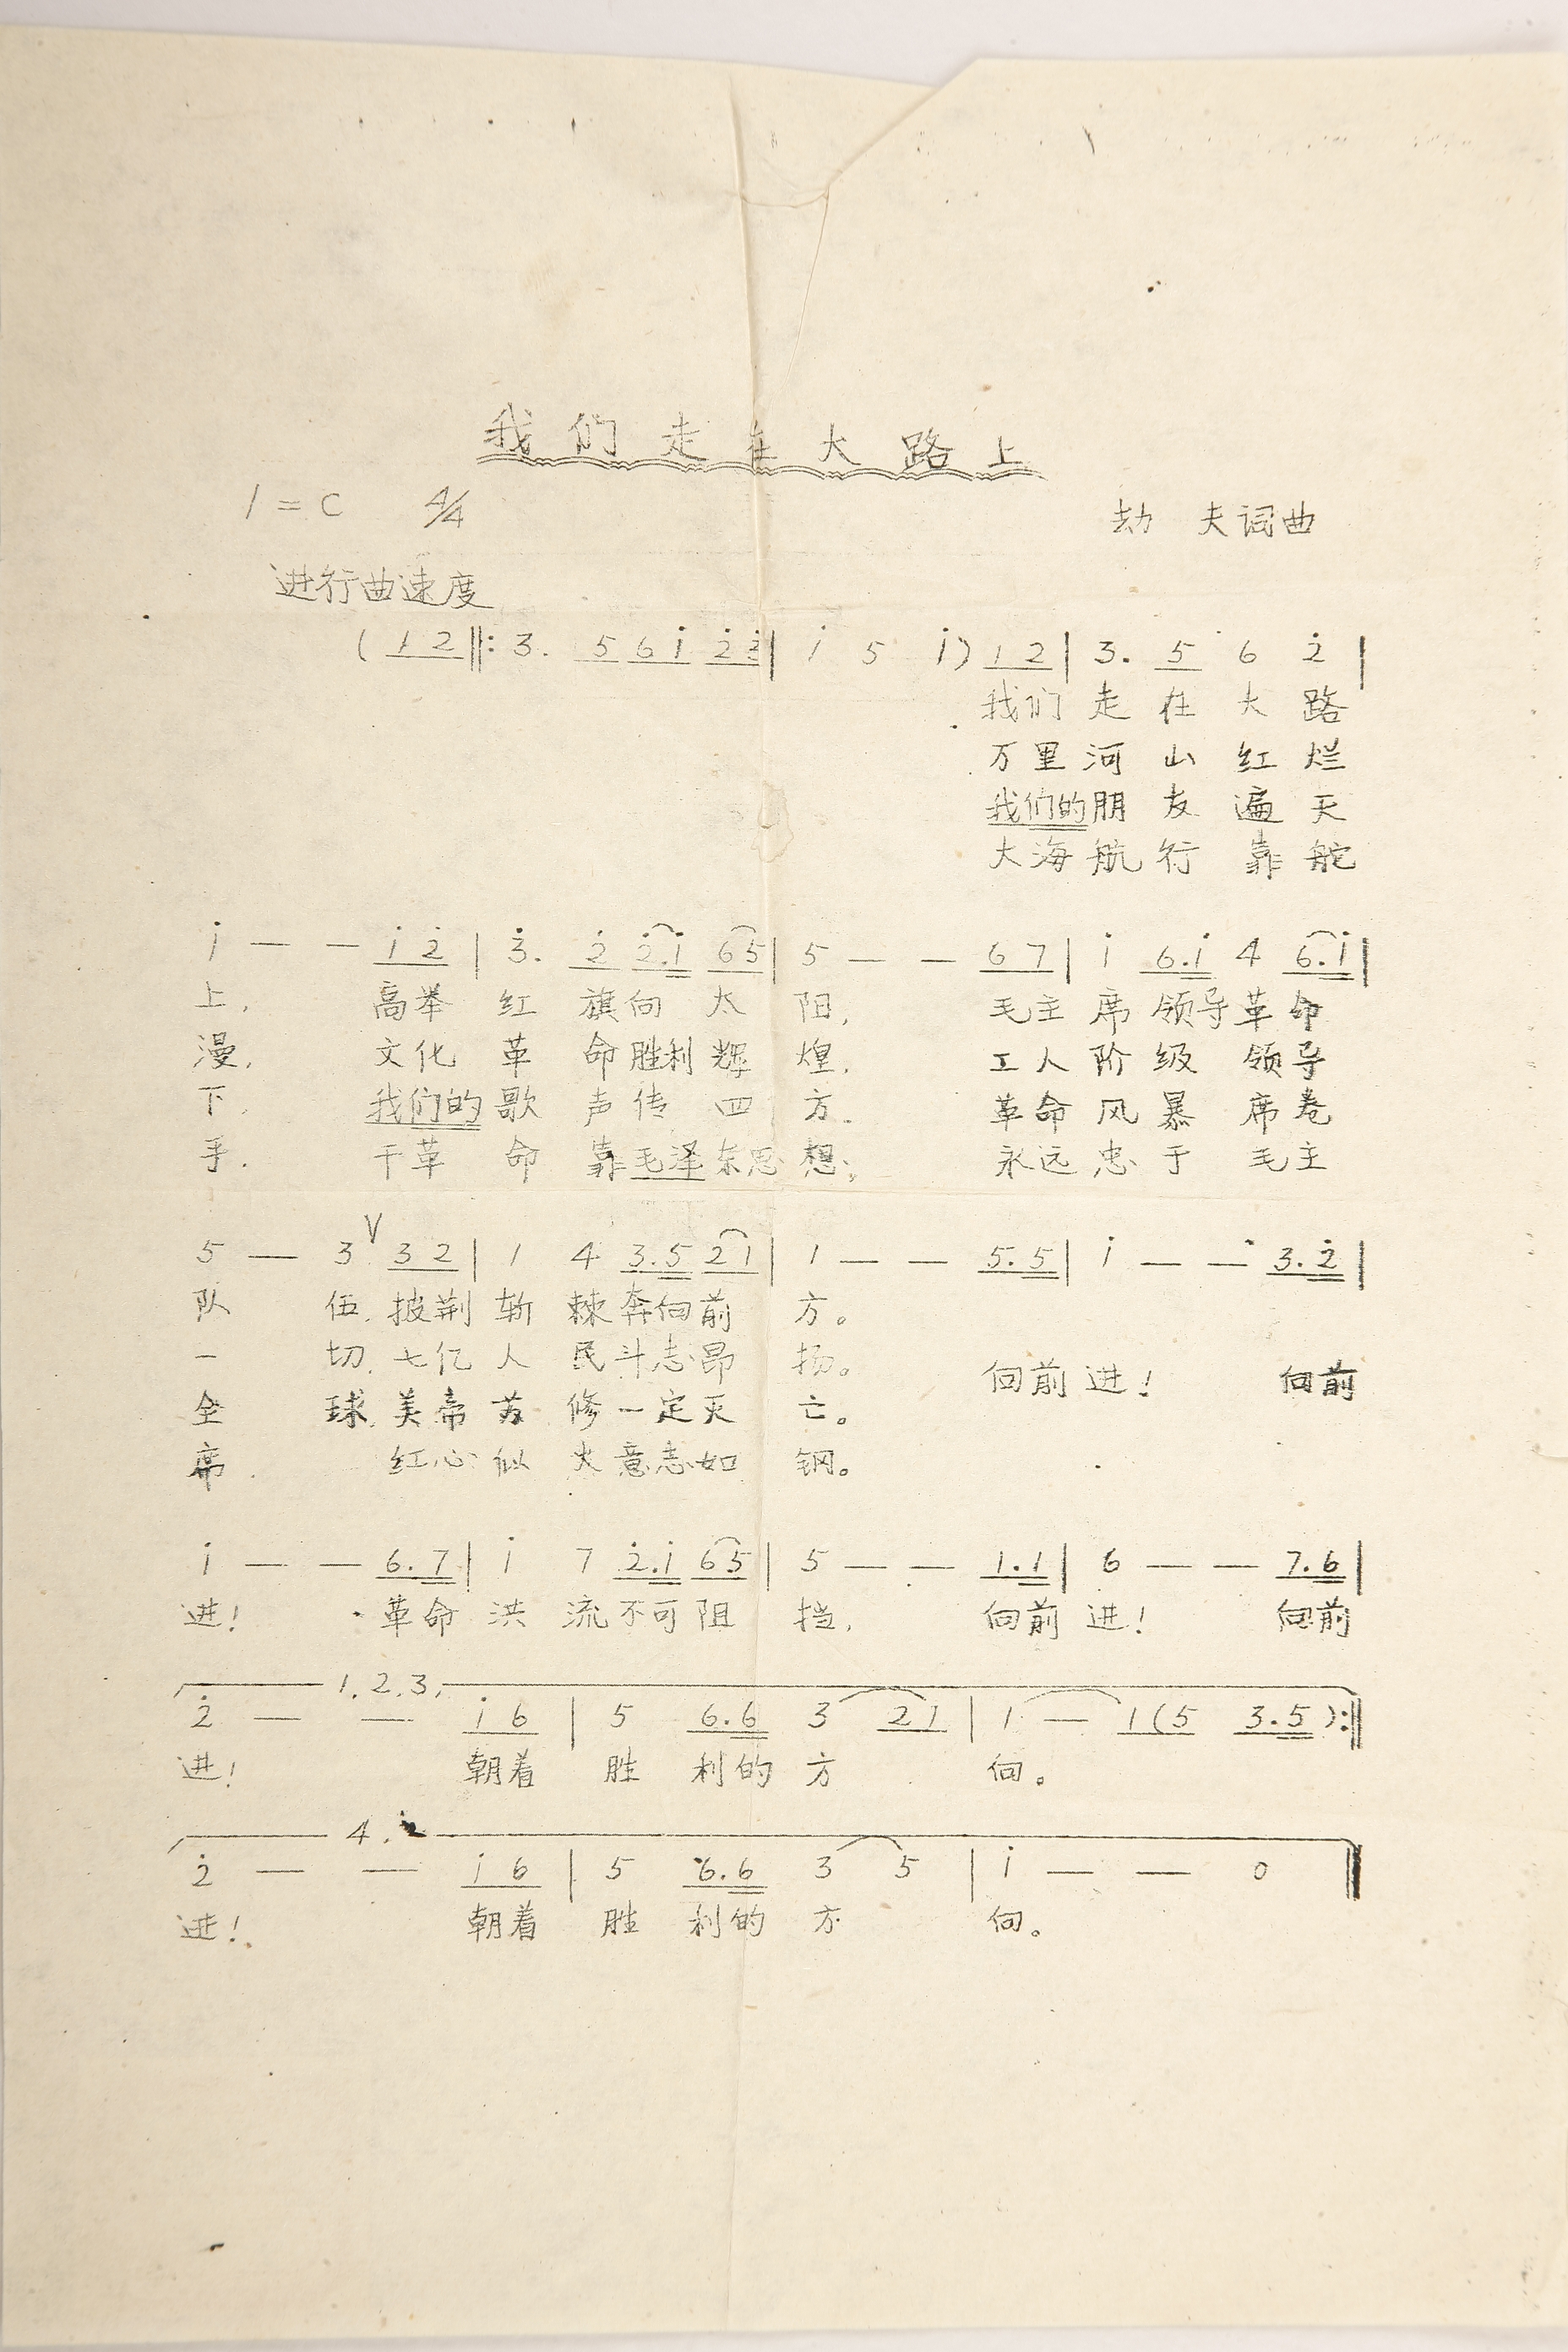 我们走在大路上
1=C 4/4 劫 夫词曲
进行曲速度
( 1 2 ‖: 3. 5 6 i̇ 2̇ 3̇ | i̇ 5 i̇ ) 1 2 | 3. 5 6 2̇ |
我们 走 在 大 路
万里 河 山 红 烂
我们的 朋 友 遍 天
大海 航 行 靠 舵
i̇ — — i̇ 2̇ | 3̇. 2̇ 2̇.i̇ 6 5 | 5 — — 6 7 | i̇ 6.i̇ 4 6.i̇ |
上, 高举 红 旗 向 太 阳, 毛主 席 领导 革 命
漫, 文化 革 命 胜利 辉 煌, 工人 阶 级 领 导
下, 我们的 歌 声 传 四 方. 革命 风 暴 席 卷
手. 干革 命 靠 毛泽 东思 想, 永远 忠 于 毛 主
5 — 3 V 3 2 | 1 4 3.5 2 1 | 1 — — 5.5 | i̇ — — 3.2̇ |
队 伍, 披荆 斩 棘 奔向 前 方。
一 切, 七亿 人 民 斗志 昂 扬。 向前 进! 向前
全 球, 美帝 苏 修 一定 灭 亡。
席. 红心 似 火 意志 如 钢。
i̇ — — 6.7 | i̇ 7 2̇.i̇ 6 5 | 5 — — 1.1 | 6 — — 7.6 |
进! 革命 洪 流 不可 阻 挡, 向前 进! 向前
1.2.3.
2̇ — — i̇ 6 | 5 6.6 3 2 1 | 1 — 1 ( 5 3.5 ) :‖
进! 朝着 胜 利的 方 向。
4.
2̇ — — i̇ 6 | 5 6.6 3 5 | i̇ — — 0 ‖
进! 朝着 胜 利的 方 向。